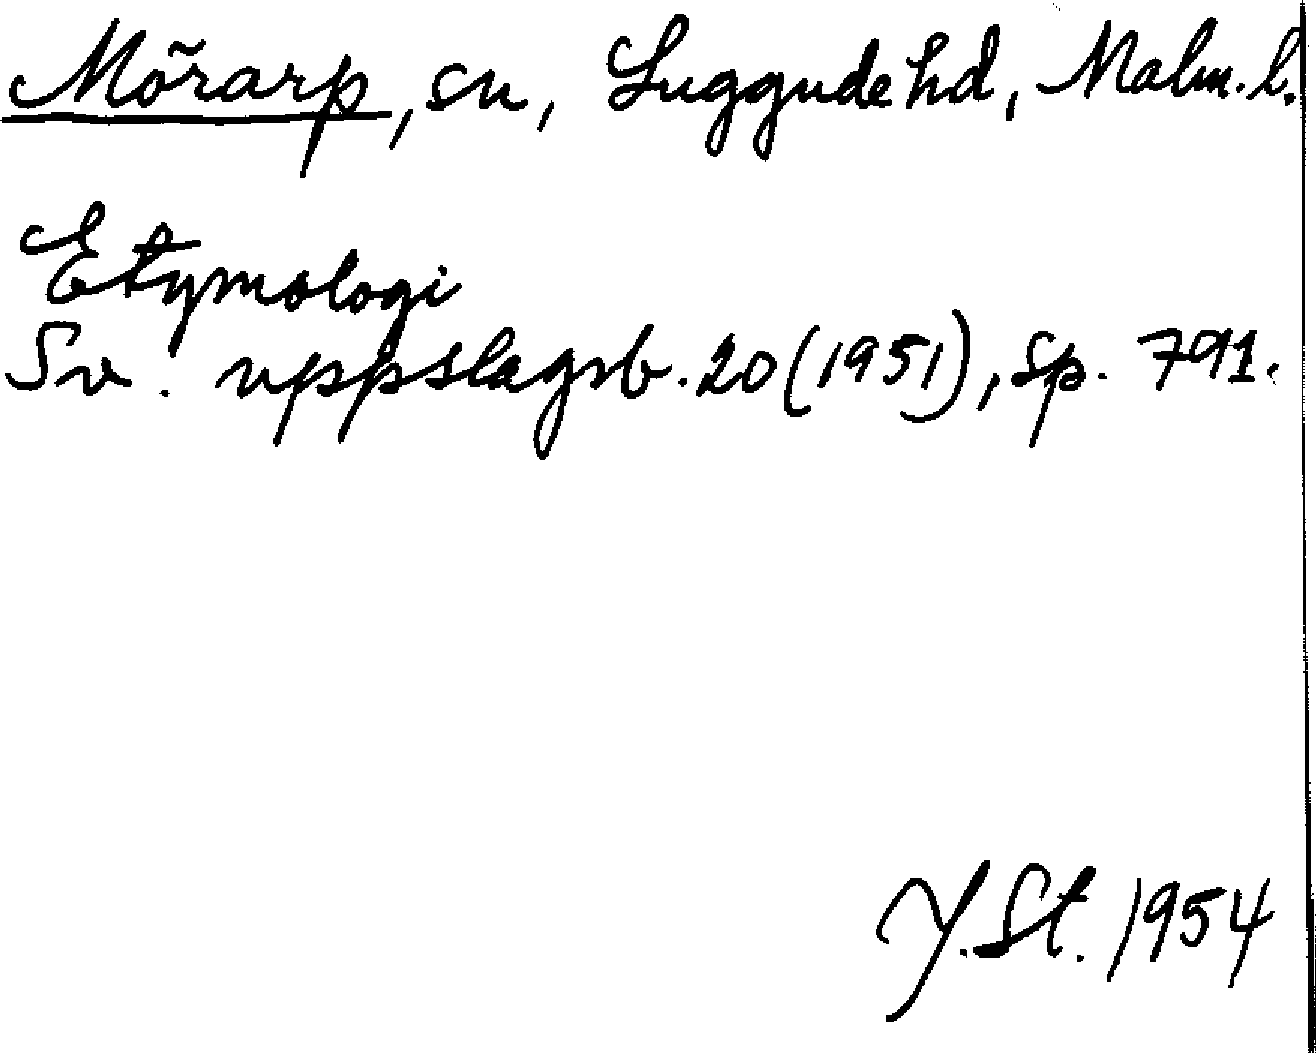 Mörarp, sn, Luggude hd, Malm. l.
Etymologi
Sv. uppslagsb. 20 (1951), sp. 791.
Y. St. 1954